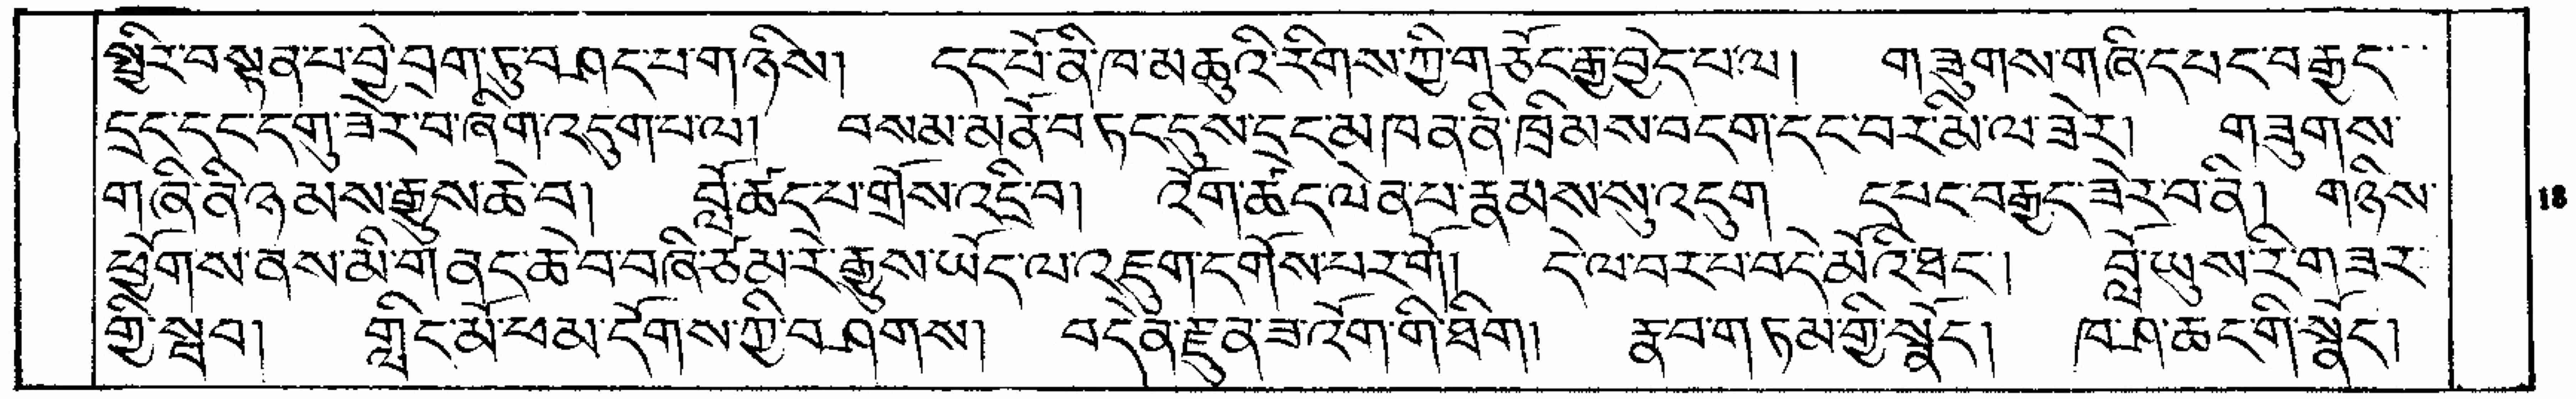 སྤྱིར་བསྟན་པ་བྱེ་བྲག་ཏུ་བཤད་པ་གཉིས། དང་པོ་ནི་ཁ་མཆུའི་རིགས་ཀྱི་གཙོང་རྒྱ་བྱེད་པ་ལ། གཟུགས་གཞི་དཔང་བརྒྱད་
དྲང་དང་དགུ་ཟེར་བ་ཞིག་འདུག་པ་ལ། བསམ་མནོ་བཏང་དུས་དྲང་མཁན་ནི་ཁྲིམས་བདག་དང་བར་མི་ལ་ཟེར། གཟུགས་
གཞི་ནི་ཉམས་རྒྱུས་ཆེ་བ། བློ་ཚད་པ་གྲོས་འདྲི་བ། འོག་ཚོད་ལེན་པ་རྣམས་སུ་འདུག དཔང་བརྒྱད་ཟེར་བ་ནི། གཉིས་
ཕྱོགས་ནས་མི་གནད་ཆེ་བ་བཞི་ཙམ་རེ་རྒྱུས་ཡོད་ལ་འཇུག་དགོས་པར་གོ། དེ་ལ་བརྡ་བདེ་མོའི་ཐད། བློ་ཡུས་རི་གཟར་
གྱི་སྦབ། གླིང་མོ་ཕམ་དོགས་ཀྱི་བཤགས། བདེན་རྫུན་ཟ་འོག་གི་ཐིག། རྣབ་གཏམ་གྱི་སྣོད། ཁ་ཤ་ཆང་གི་སྣོད།
18